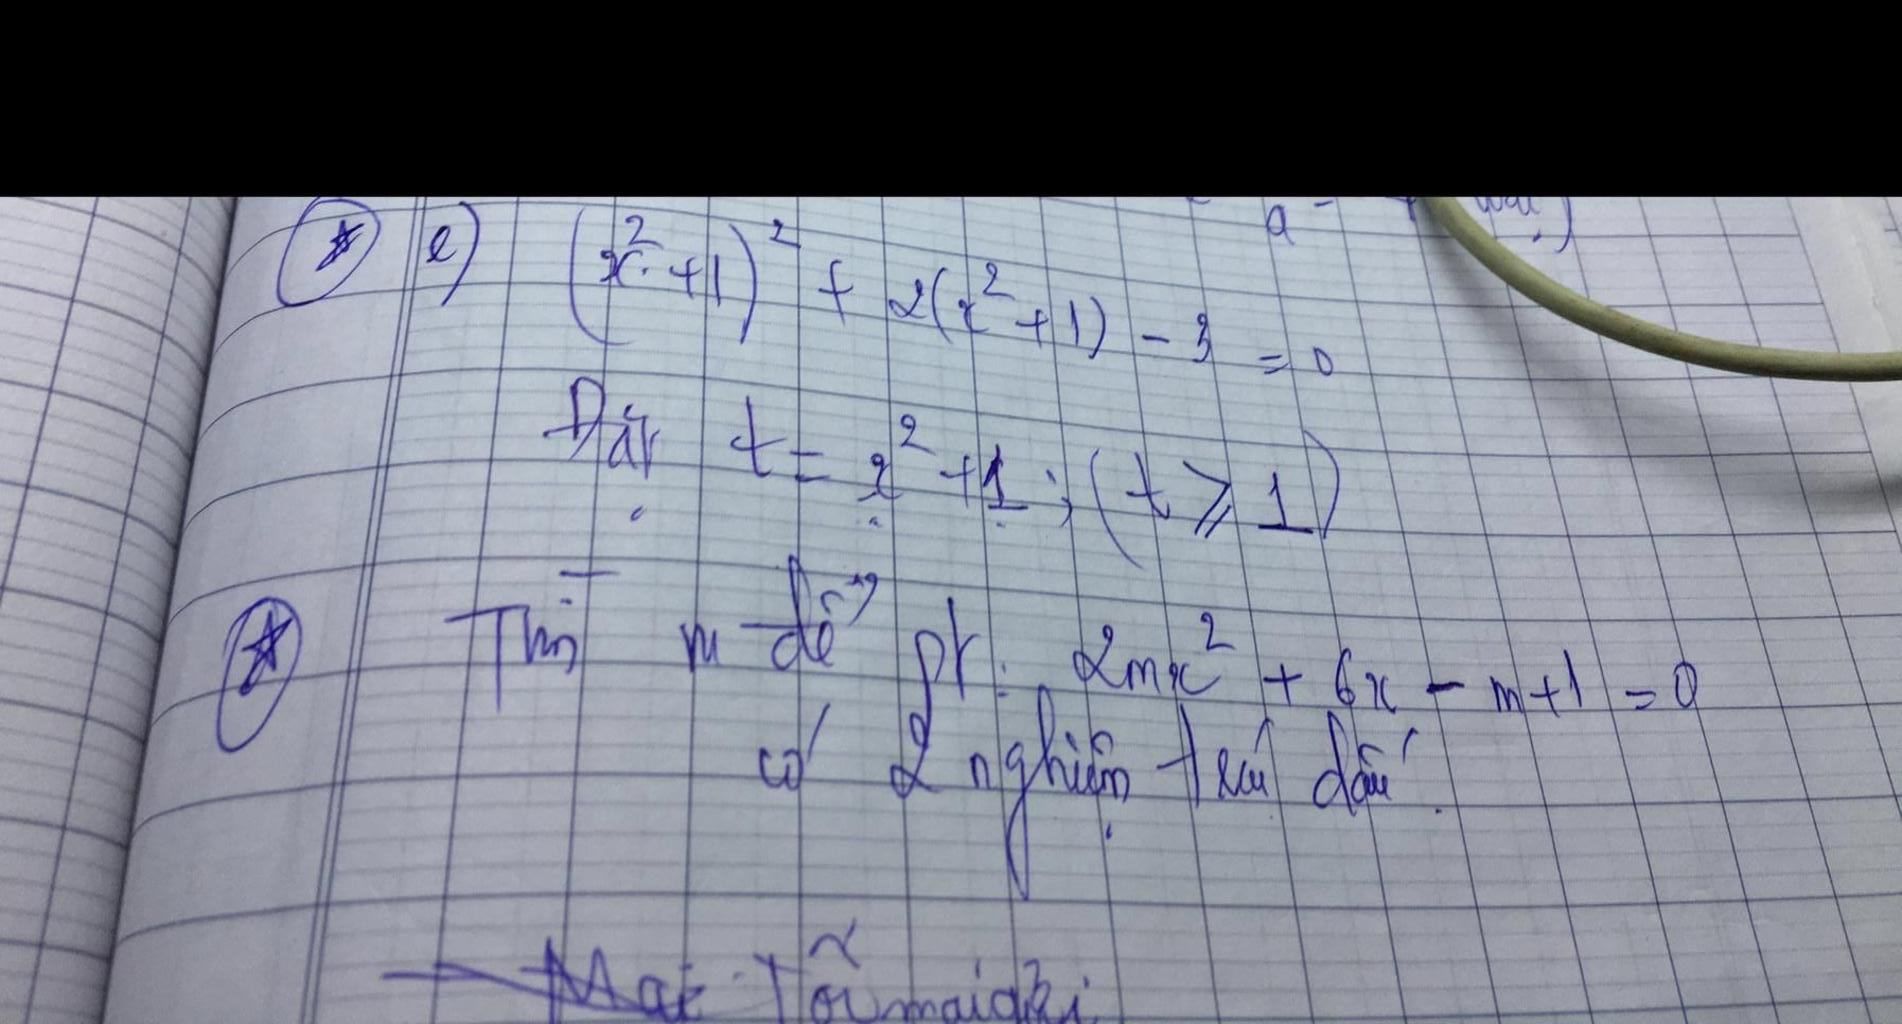 e) (x²+1)² + 2(x²+1) - 3 = 0
Đặt t = x²+1 ; (t ⩾ 1)
Tìm m để pt: 2mx² + 6x - m+1 = 0
có 2 nghiệm trái dấu.